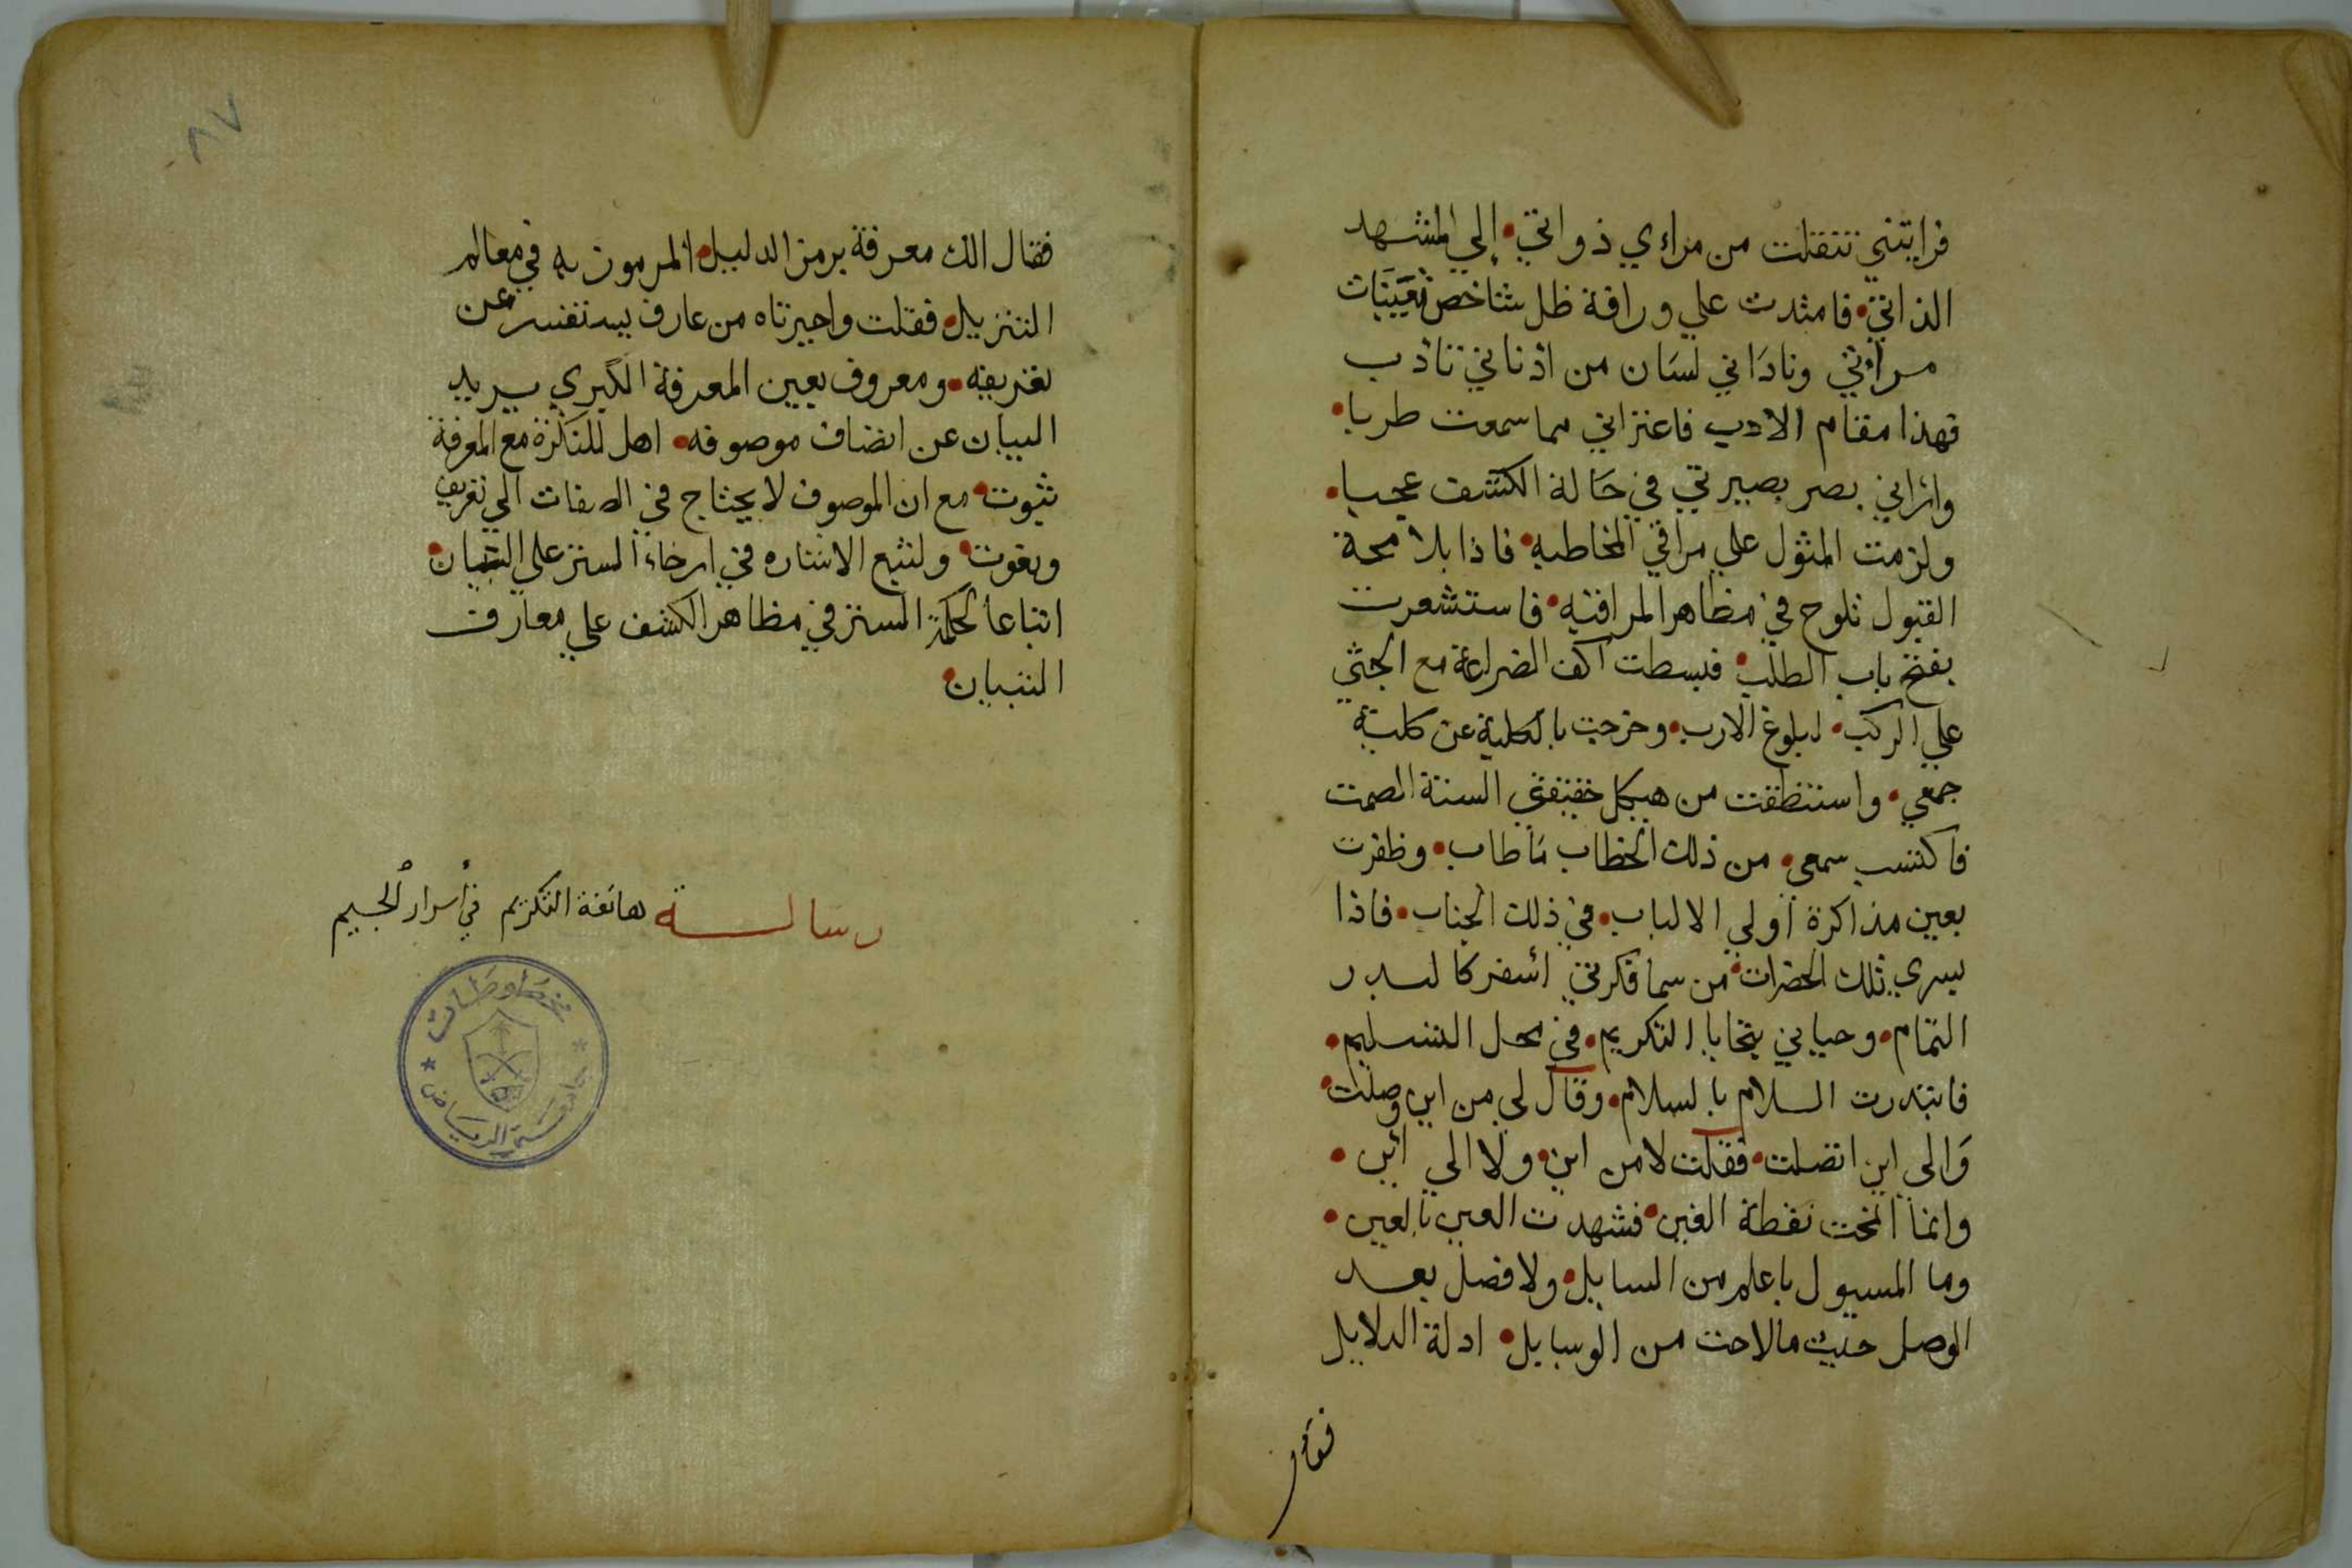 فرايتني تنقلت من مراءي ذواتي • إلي المشهد
الذاتي • فامتدت علي ورافة ظل شاخص تعينات
مرأتي وناداني لسان من اذناني تاذب
فهذا مقام الادب فاعتراني مما سمعت طربا •
واراني بصر بصيرتي في حالة الكشف عجبا •
ولزمت المثول علي مراقي المخاطبه • فاذا بلامحة
القبول تلوح في مظاهر المراقبه • فاستشعرت
بفتح باب الطلب • فبسطت اكف الضراعة مع الجثي
علي الركب • لبلوغ الارب • وخرجت بالكلية عن كلية
جمعي • واستنطقت من هيكل حقيقتي السنة الصمت
فاكتسب سمعي • من ذلك الخطاب ماطاب • وظفرت
بعين مذاكرة أولي الالباب • في ذلك الجناب • فاذا
بسري تلك الحضرات • من سما فكرتي اسفر كالبدر
التمام • وحياني بتحايا التكريم • في محل التسليم •
فابتدرت السلام بالسلام • وقال لي من اين وصلت •
والى اين اتصلت • فقلت لا من اين • ولا الي أين •
وانما انمحت نقطة الغين • فشهدت العين بالعين •
وما المسيول باعلم من السايل • ولا فضل بعد
الوصل حيث مالاحت من الوسايل • ادلة الدلايل
فقال
٨٧
فقال الك معرفة برمز الدليل • المرموز به في معالم
التنزيل • فقلت واحيرتاه من عارف يستفسر عن
تعريفه • ومعروف بعين المعرفة الكبري يريد
البيان عن اتصاف موصوفه • اهل للنكرة مع المعرفة
ثبوت • مع ان الموصوف لا يحتاج في الصفات الي تعريف
ونعوت • ولنتبع الاشاره في ارخاء الستر على التبيان •
اتباعا لحكمة الستر في مظاهر الكشف علي معارف
التبيان •
رسالة هاتفة التكريم في أسرار الجيم
مخطوطات
جامعة الرياض